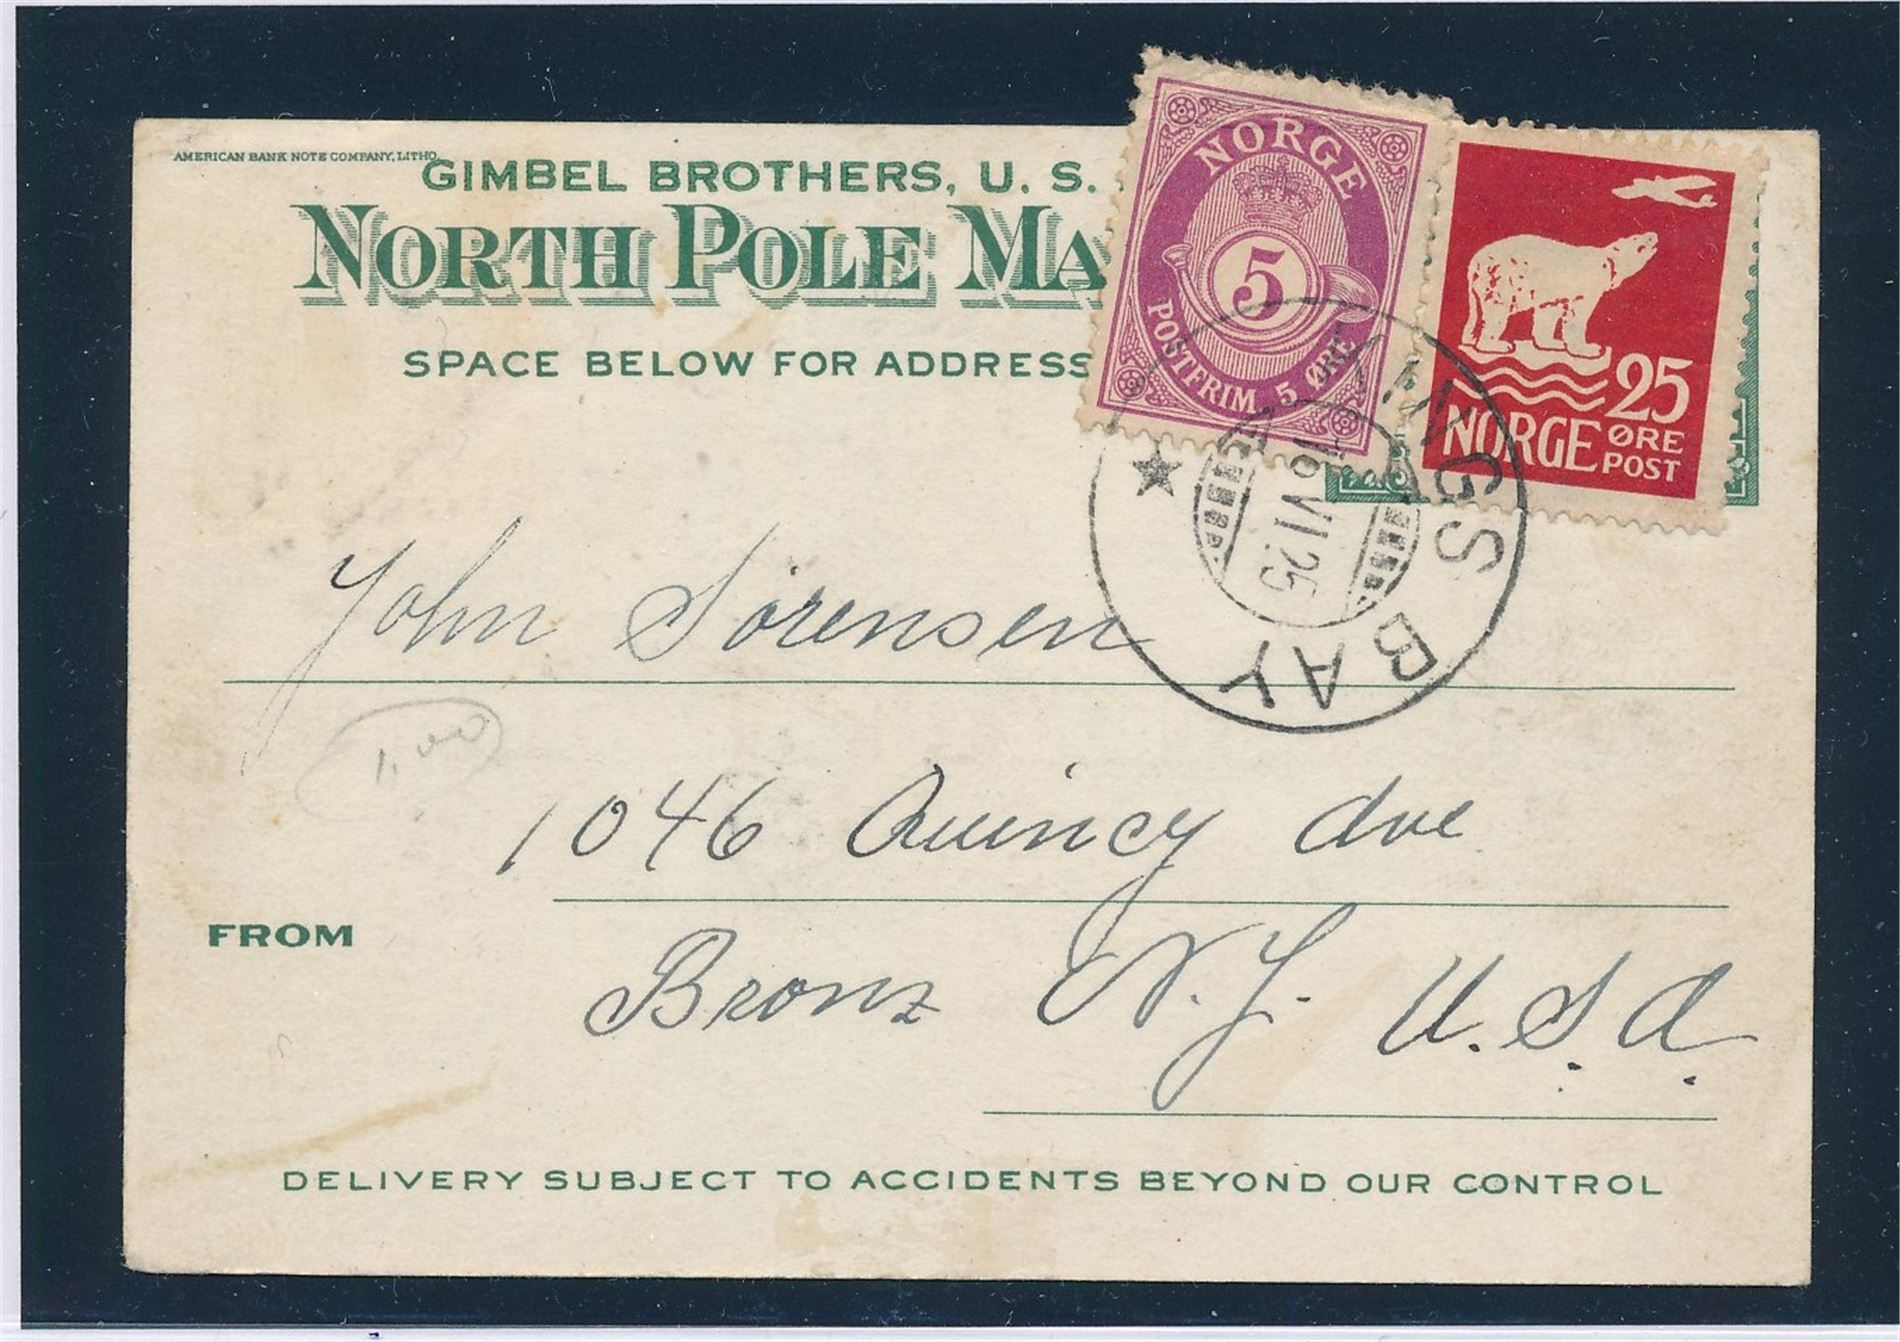 AMERICAN BANK NOTE COMPANY, LITHO.
GIMBEL BROTHERS, U. S.
NORTH POLE MA
SPACE BELOW FOR ADDRESS
NORGE
5
POSTFRIM. 5 ØRE
25
NORGE ØRE
POST
KINGS BAY
16 VI 25
John Sorensen
1.00
1046 Quincy Ave
FROM
Bronx N.J. U.S.A.
DELIVERY SUBJECT TO ACCIDENTS BEYOND OUR CONTROL